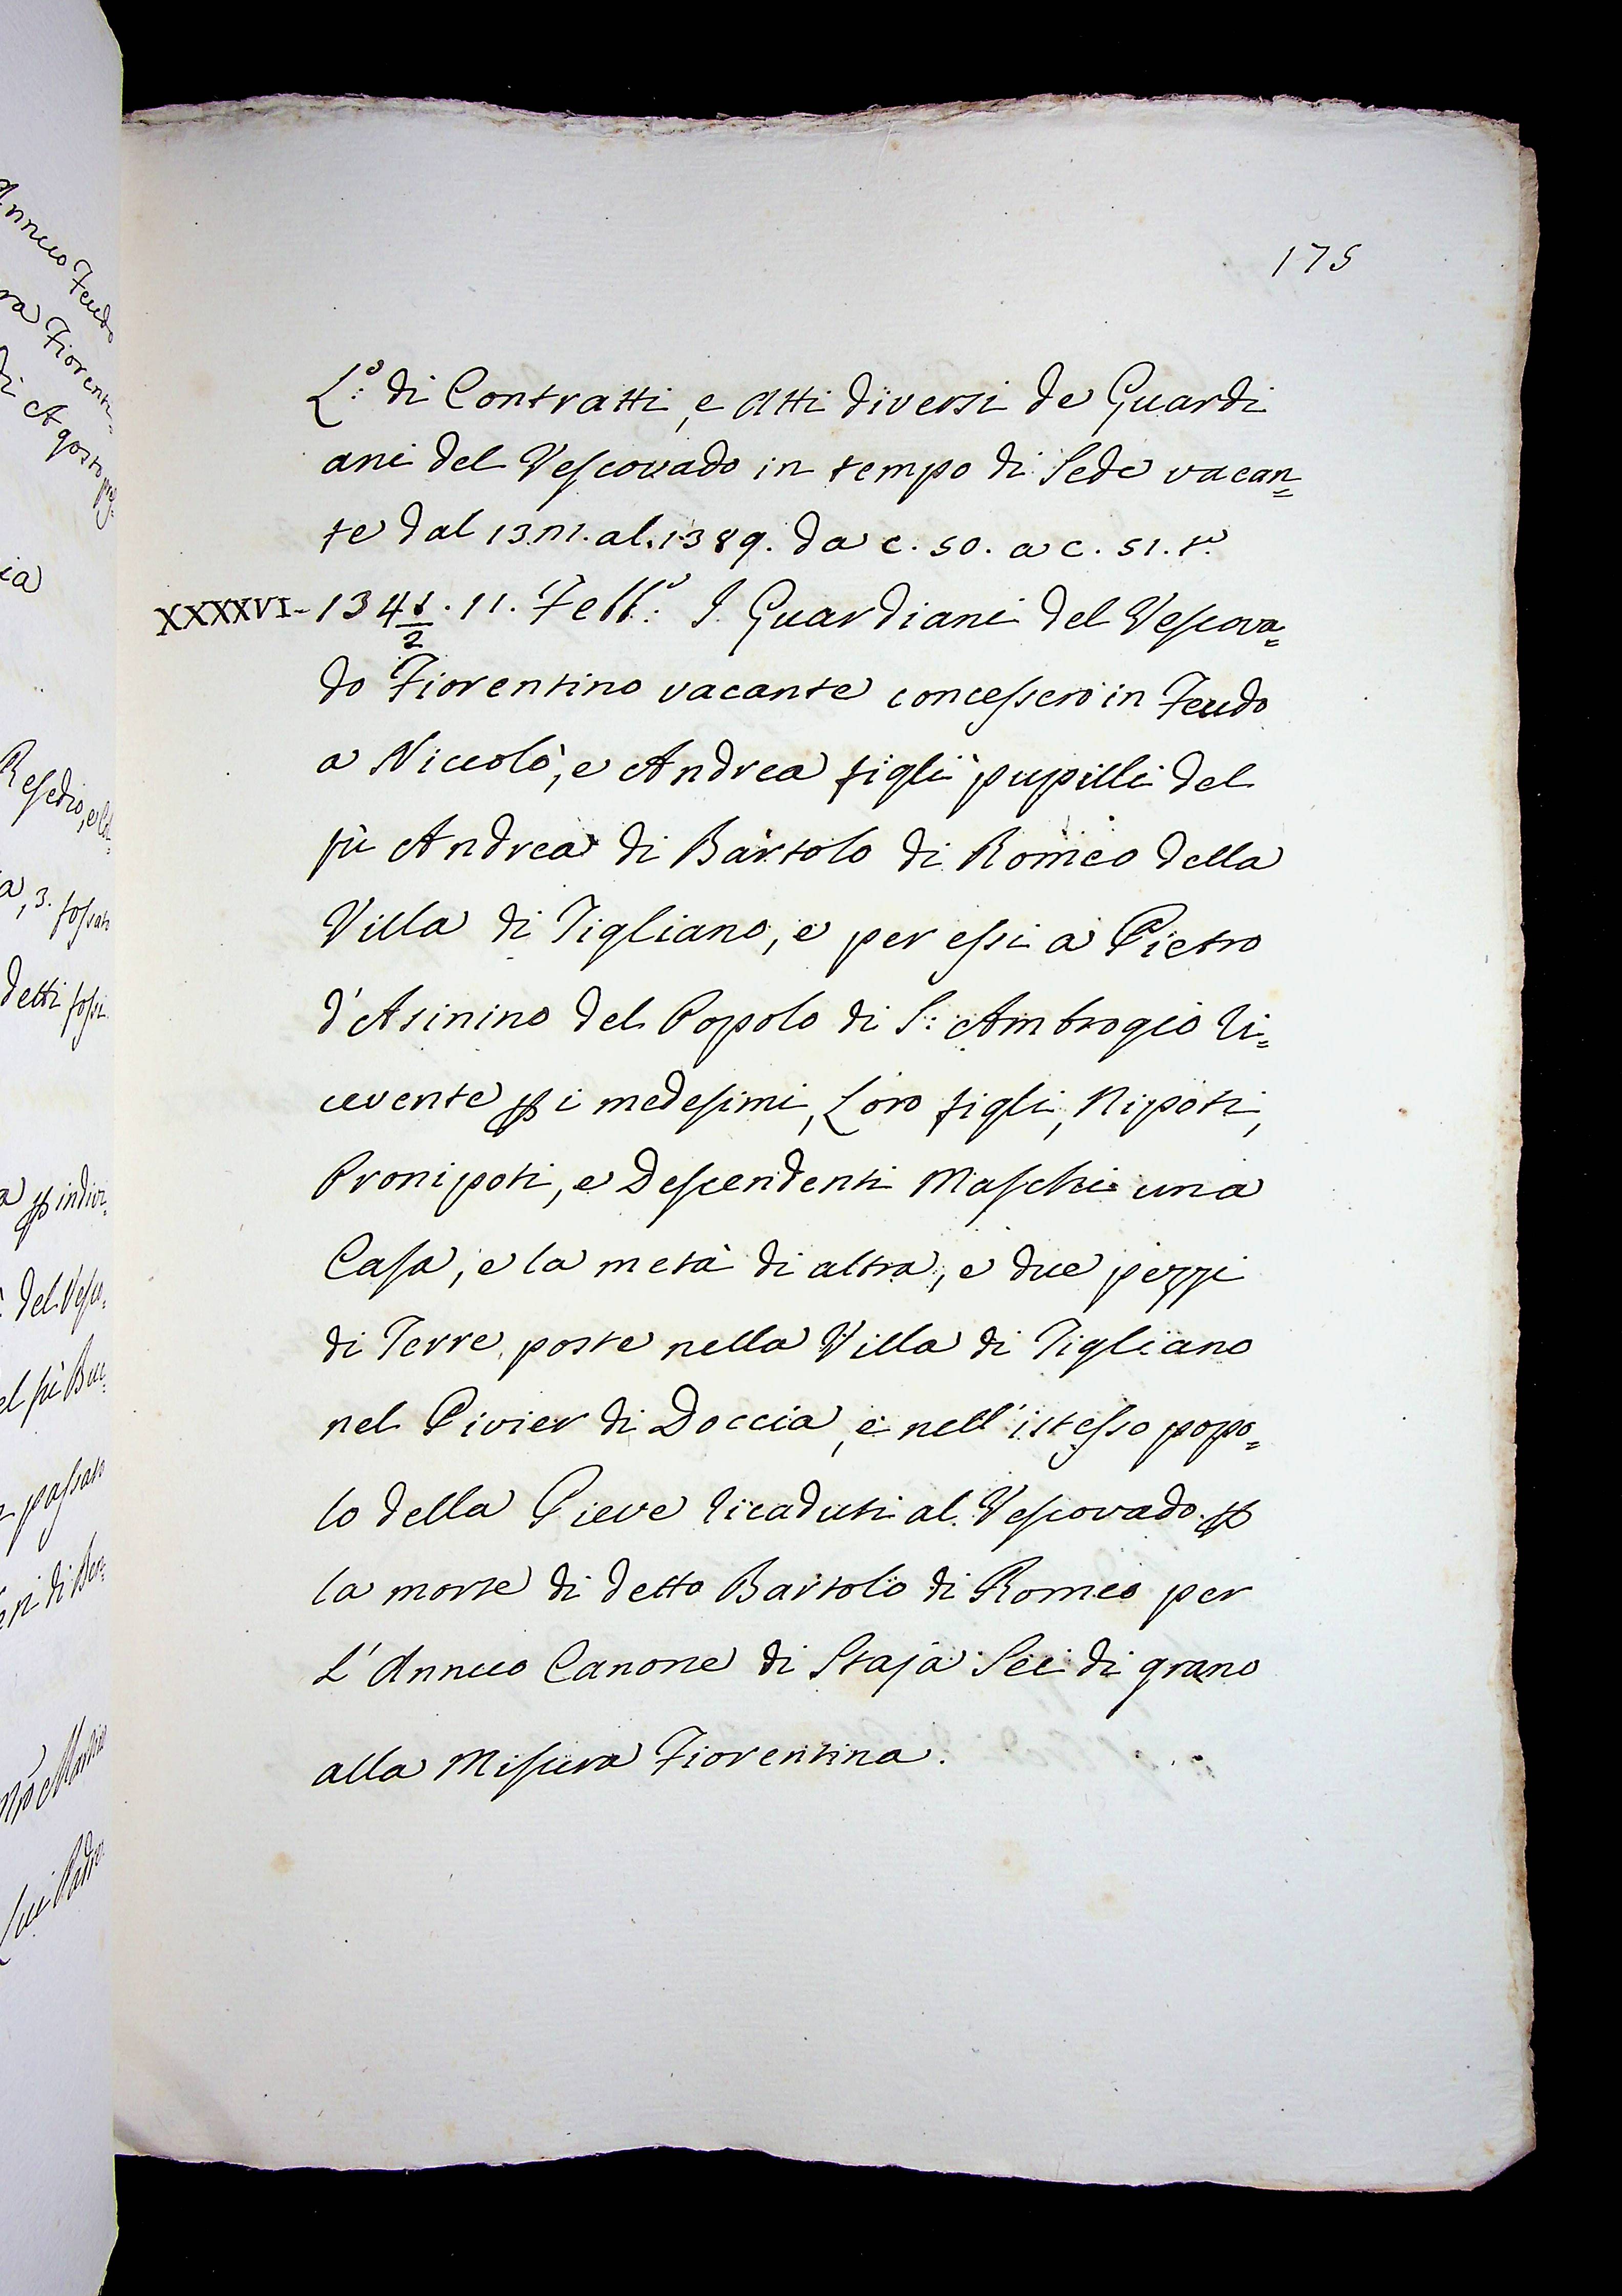 175
L.º di Contratti, e Atti diversi de Guardi
ani del Vescovado in tempo di Sede vacan=
te dal al 1389. da c. 50. a c. 51. t.º
XXXXVI- 134 1/2. 11. Febb.º I Guardiani del Vescova=
do Fiorentino vacante concessero in Feudo
a Niccolò, e Andrea figli pupilli del
fù Andrea di Bartolo di Romeo della
Villa di Tigliano, e per essi a Pietro
d'Asinino del Popolo di S: Ambrogio ri=
cevente ꝑ i medesimi, Loro figli, Nipoti,
Pronipoti, e Descendenti Maschi una
Casa, e la metà di altra, e due pezzi
di Terre poste nella Villa di Tigliano
nel Pivier di Doccia, e nell'istesso popo=
lo della Pieve ricaduti al Vescovado ꝑ
la morte di detto Bartolo di Romeo per
L'Annuo Canone di Staja Sei di grano
alla Misura Fiorentina.
Annuo Feudo
Fiorenti=
di Agosto
Resedio, e
3. fossato
detti fossi
ꝑ indivi=
del Vesco=
passato